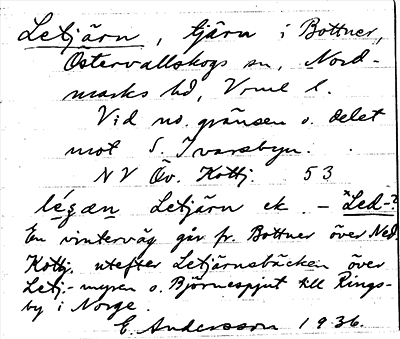 Letjärn, tjärn i Bottner,
Östervallskogs sn, Nord-
marks hd, Vrml l.
Vid no. gränsen o. delet
mot S. Ivarsbyn.
NV Öv. Kottj. 53
légan Letjärn ek. – "Led-"?
En vinterväg går fr. Bottner över Ned.
Kottj. utefter Letjärnsbäcken över
Letj.-myren o. Björnespjut till Rings-
by i Norge.
E. Andersson 1936.